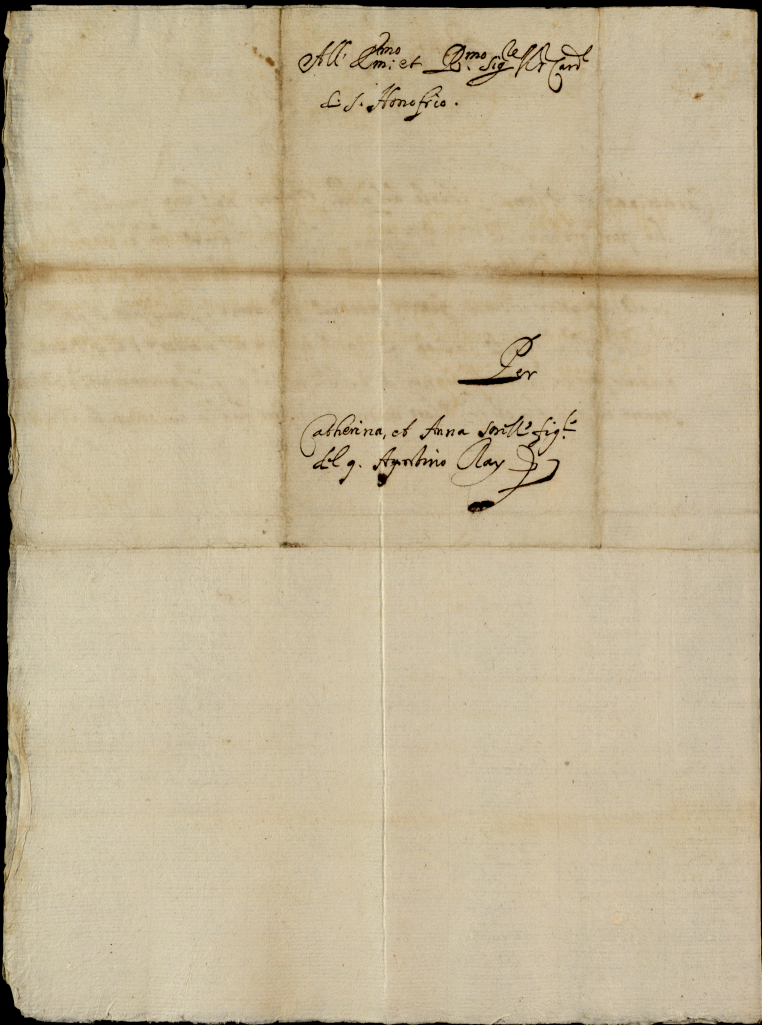 All' Em:mo et R:mo Sig:re Sr Card:l
di S. Honofrio.
Per
Catherina, et Anna sorelle figl:e
del q. Agostino Ray